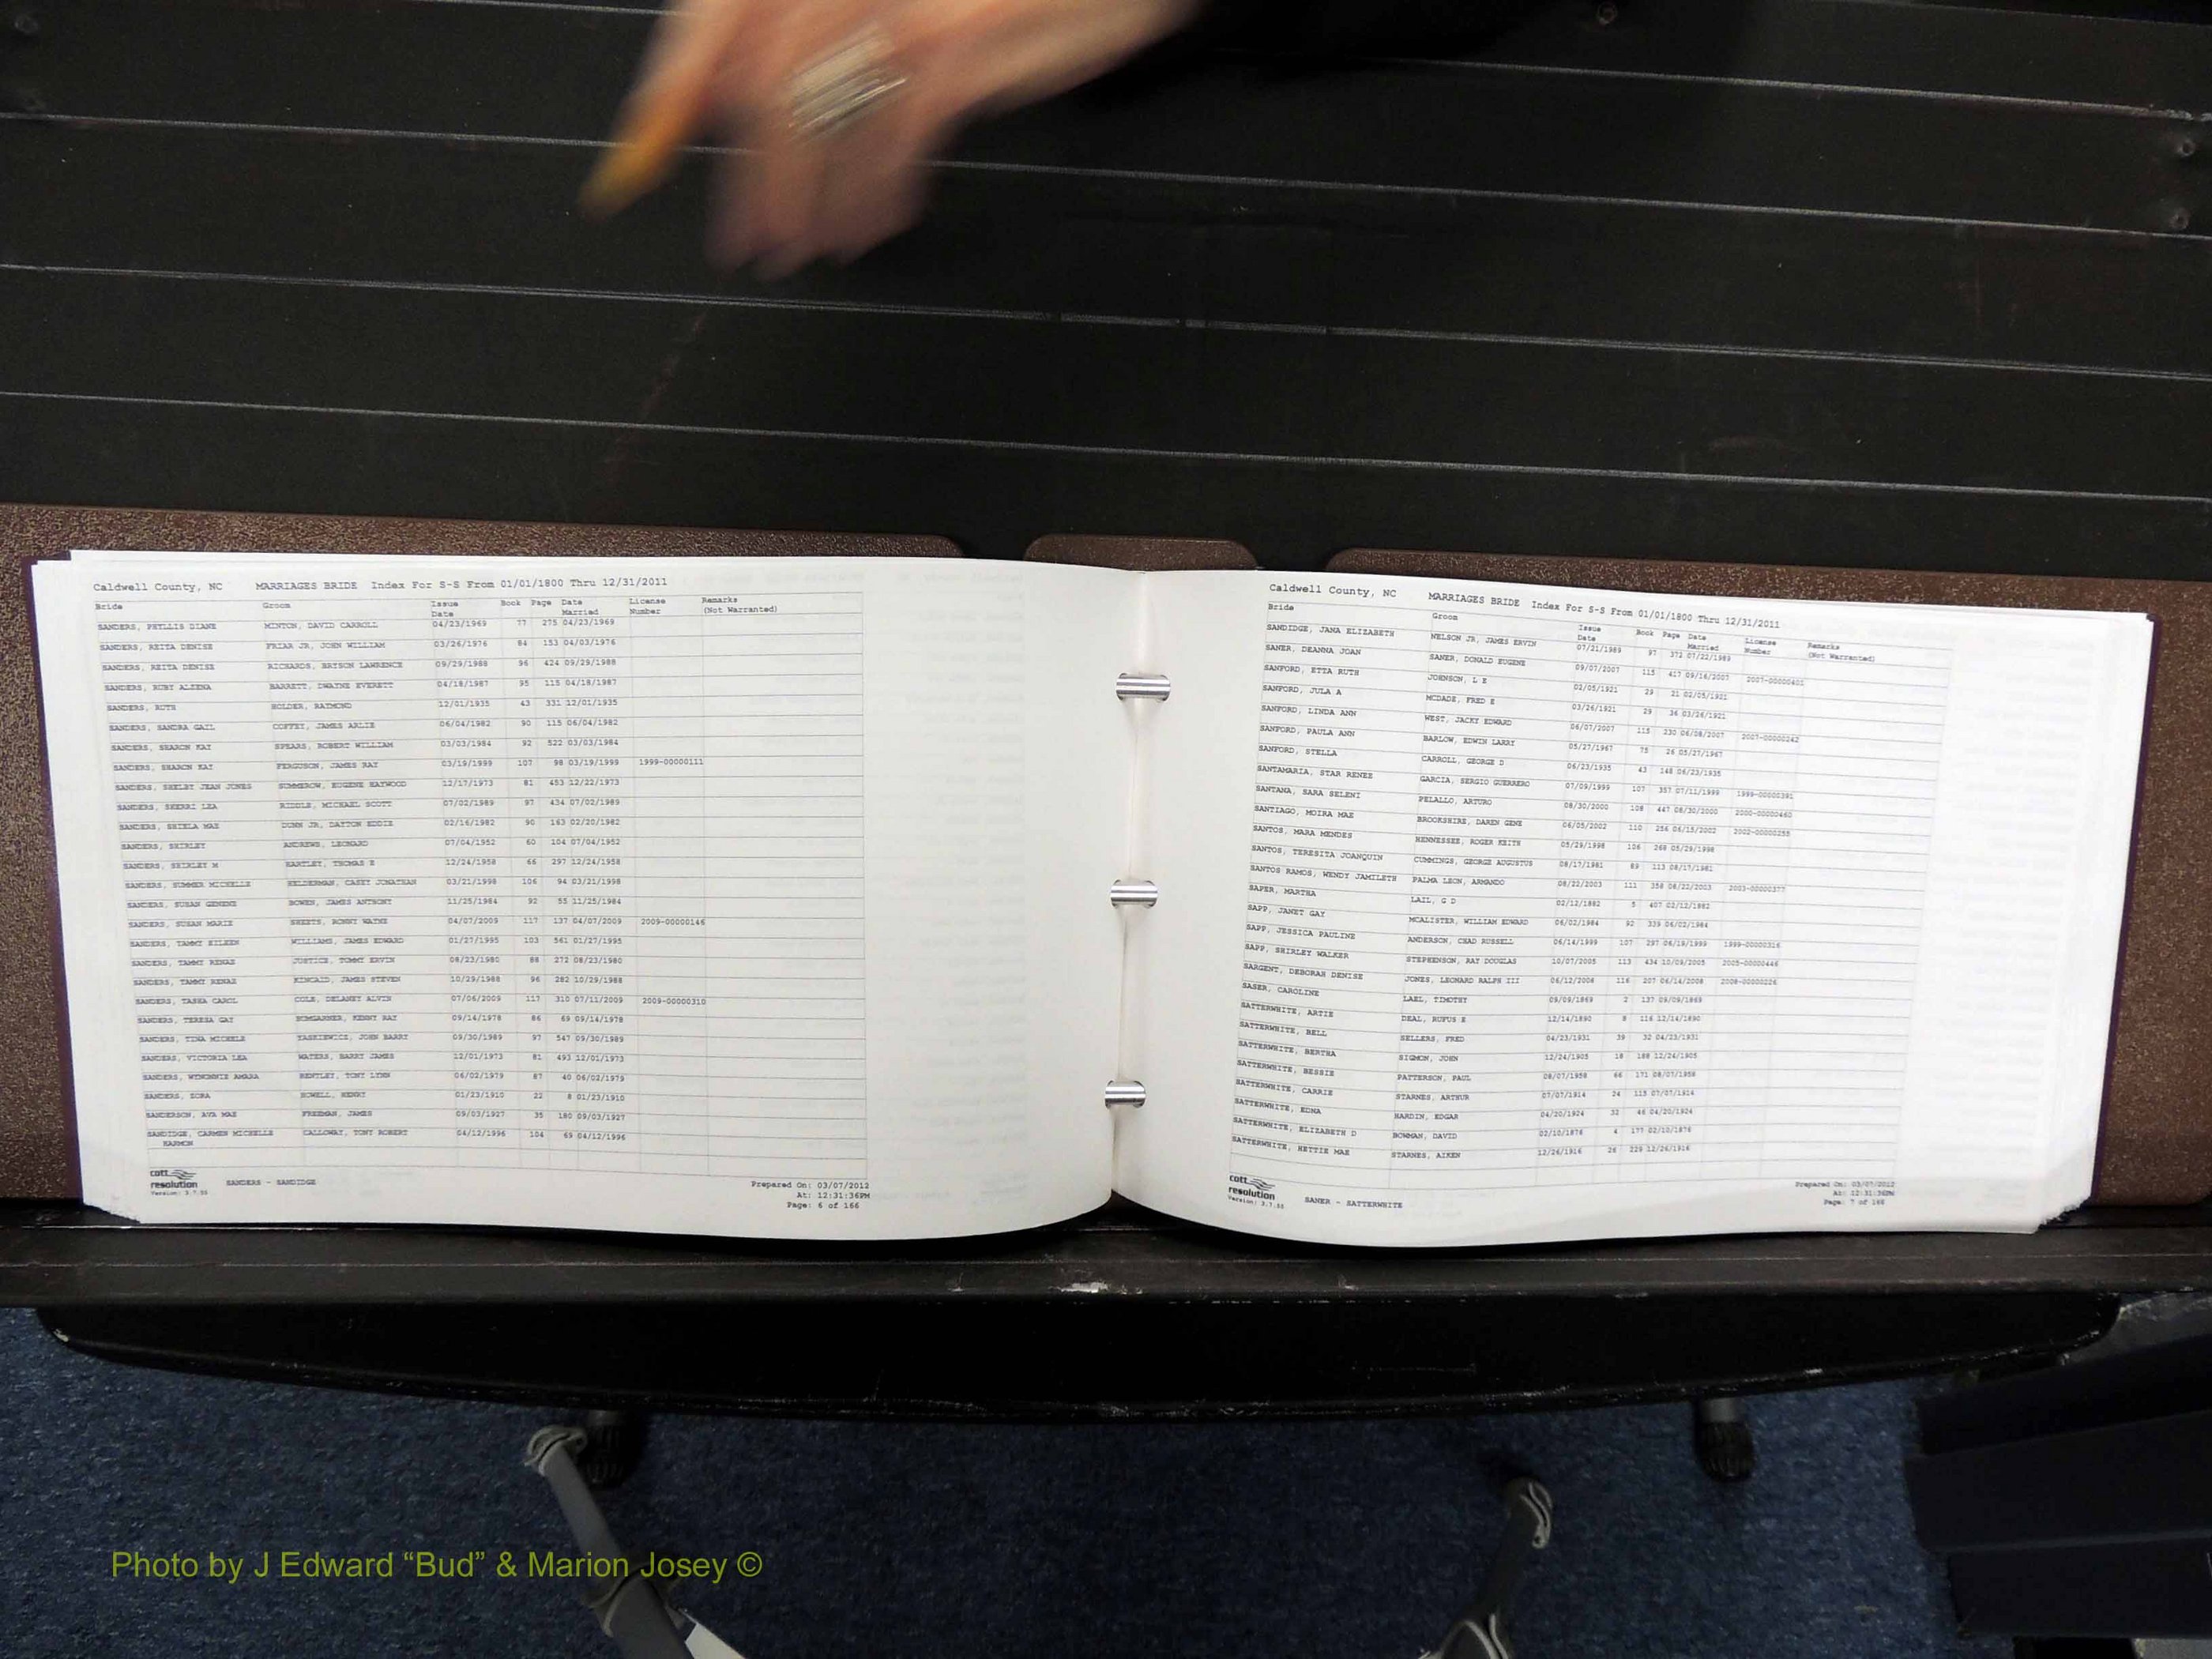 Caldwell County, NC MARRIAGES BRIDE Index For S-S From 01/01/1800 Thru 12/31/2011
Bride Groom Issue Date Book Page Date Married License Number Remarks (Not Warranted)
SANDERS, PHYLLIS DIANE MINTON, DAVID CARROLL 04/23/1969 77 275 04/23/1969
SANDERS, REITA DENISE FRIAR JR, JOHN WILLIAM 03/26/1976 84 153 04/03/1976
SANDERS, REITA DENISE RICHARDS, BRYSON LAWRENCE 09/29/1988 96 424 09/29/1988
SANDERS, RUBY ALZENA BARRETT, DWAYNE EVERETT 04/18/1987 95 115 04/18/1987
SANDERS, RUTH HOLDER, RAYMOND 12/01/1935 43 331 12/01/1935
SANDERS, SANDRA GAIL COFFEY, JAMES ARLIE 06/04/1982 90 115 06/04/1982
SANDERS, SHARON KAY SPEARS, ROBERT WILLIAM 03/03/1984 92 522 03/03/1984
SANDERS, SHARON KAY FERGUSON, JAMES RAY 03/19/1999 107 98 03/19/1999 1999-00000111
SANDERS, SHELBY JEAN JONES SUMMEROW, EUGENE HAYWOOD 12/17/1973 81 453 12/22/1973
SANDERS, SHERRI LEA RIDDLE, MICHAEL SCOTT 07/02/1989 97 434 07/02/1989
SANDERS, SHIELA MAE DUNN JR, DAYTON EDDIE 02/16/1982 90 163 02/20/1982
SANDERS, SHIRLEY ANDREWS, LEONARD 07/04/1952 60 104 07/04/1952
SANDERS, SHIRLEY M HARTLEY, THOMAS E 12/24/1958 66 297 12/24/1958
SANDERS, SUMMER MICHELLE HELDERMAN, CASEY JONATHAN 03/21/1998 106 94 03/21/1998
SANDERS, SUSAN GENENE BOWEN, JAMES ANTHONY 11/25/1984 92 55 11/25/1984
SANDERS, SUSAN MARIE SHEETS, RONNY WAYNE 04/07/2009 117 137 04/07/2009 2009-00000146
SANDERS, TAMMY EILEEN WILLIAMS, JAMES EDWARD 01/27/1995 103 561 01/27/1995
SANDERS, TAMMY RENAE JUSTICE, TOMMY ERVIN 08/23/1980 88 272 08/23/1980
SANDERS, TAMMY RENAE KINCAID, JAMES STEVEN 10/29/1988 96 282 10/29/1988
SANDERS, TASHA CAROL COLE, DELANEY ALVIN 07/06/2009 117 310 07/11/2009 2009-00000310
SANDERS, TERESA GAY BUMGARNER, KENNY RAY 09/14/1978 86 69 09/14/1978
SANDERS, TINA MICHELE YASKIEWICZ, JOHN BARRY 09/30/1989 97 547 09/30/1989
SANDERS, VICTORIA LEA WATERS, BARRY JAMES 12/01/1973 81 493 12/01/1973
SANDERS, WINONNIE AMARA BENTLEY, TONY LYNN 06/02/1979 87 40 06/02/1979
SANDERS, ZORA HOWELL, HENRY 01/23/1910 22 8 01/23/1910
SANDERSON, AVA MAE FREEMAN, JAMES 09/03/1927 35 180 09/03/1927
SANDIDGE, CARMEN MICHELLE CALLOWAY, TONY ROBERT 04/12/1996 104 69 04/12/1996
HARMON
cott
resolution SANDERS - SANDIDGE Prepared On: 03/07/2012
Version: 3.7.55 At: 12:31:36PM
Page: 6 of 166
Caldwell County, NC MARRIAGES BRIDE Index For S-S From 01/01/1800 Thru 12/31/2011
Bride Groom Issue Date Book Page Date Married License Number Remarks (Not Warranted)
SANDIDGE, JANA ELIZABETH NELSON JR, JAMES ERVIN 07/21/1989 97 372 07/22/1989
SANER, DEANNA JOAN SANER, DONALD EUGENE 09/07/2007 115 417 09/16/2007 2007-00000401
SANFORD, ETTA RUTH JOHNSON, L E 02/05/1921 29 21 02/05/1921
SANFORD, JULA A MCDADE, FRED E 03/26/1921 29 36 03/26/1921
SANFORD, LINDA ANN WEST, JACKY EDWARD 06/07/2007 115 230 06/08/2007 2007-00000242
SANFORD, PAULA ANN BARLOW, EDWIN LARRY 05/27/1967 75 26 05/27/1967
SANFORD, STELLA CARROLL, GEORGE D 06/23/1935 43 148 06/23/1935
SANTAMARIA, STAR RENEE GARCIA, SERGIO GUERRERO 07/09/1999 107 357 07/11/1999 1999-00000391
SANTANA, SARA SELENI PELALLO, ARTURO 08/30/2000 108 447 08/30/2000 2000-00000460
SANTIAGO, MOIRA MAE BROOKSHIRE, DAREN GENE 06/05/2002 110 256 06/15/2002 2002-00000255
SANTOS, MARA MENDES HENNESSEE, ROGER KEITH 05/29/1998 106 268 05/29/1998
SANTOS, TERESITA JOANQUIN CUMMINGS, GEORGE AUGUSTUS 08/17/1981 89 113 08/17/1981
SANTOS RAMOS, WENDY JAMILETH PALMA LEON, ARMANDO 08/22/2003 111 358 08/22/2003 2003-00000377
SAPER, MARTHA LAIL, G D 02/12/1882 5 407 02/12/1882
SAPP, JANET GAY MCALISTER, WILLIAM EDWARD 06/02/1984 92 339 06/02/1984
SAPP, JESSICA PAULINE ANDERSON, CHAD RUSSELL 06/14/1999 107 297 06/19/1999 1999-00000316
SAPP, SHIRLEY WALKER STEPHENSON, RAY DOUGLAS 10/07/2005 113 434 10/09/2005 2005-00000446
SARGENT, DEBORAH DENISE JONES, LEONARD RALPH III 06/12/2008 116 207 06/14/2008 2008-00000226
SASER, CAROLINE LAEL, TIMOTHY 09/09/1869 2 137 09/09/1869
SATTERWHITE, ARTIE DEAL, RUFUS E 12/14/1890 8 116 12/14/1890
SATTERWHITE, BELL SELLERS, FRED 04/23/1931 39 32 04/23/1931
SATTERWHITE, BERTHA SIGMON, JOHN 12/24/1905 18 188 12/24/1905
SATTERWHITE, BESSIE PATTERSON, PAUL 08/07/1958 66 171 08/07/1958
SATTERWHITE, CARRIE STARNES, ARTHUR 07/07/1914 24 113 07/07/1914
SATTERWHITE, EDNA HARDIN, EDGAR 04/20/1924 32 46 04/20/1924
SATTERWHITE, ELIZABETH D BOWMAN, DAVID 02/10/1876 4 177 02/10/1876
SATTERWHITE, HETTIE MAE STARNES, AIKEN 12/26/1916 26 229 12/26/1916
cott
resolution SANER - SATTERWHITE Prepared On: 03/07/2012
Version: 3.7.55 At: 12:31:36PM
Page: 7 of 166
Photo by J Edward “Bud” & Marion Josey ©